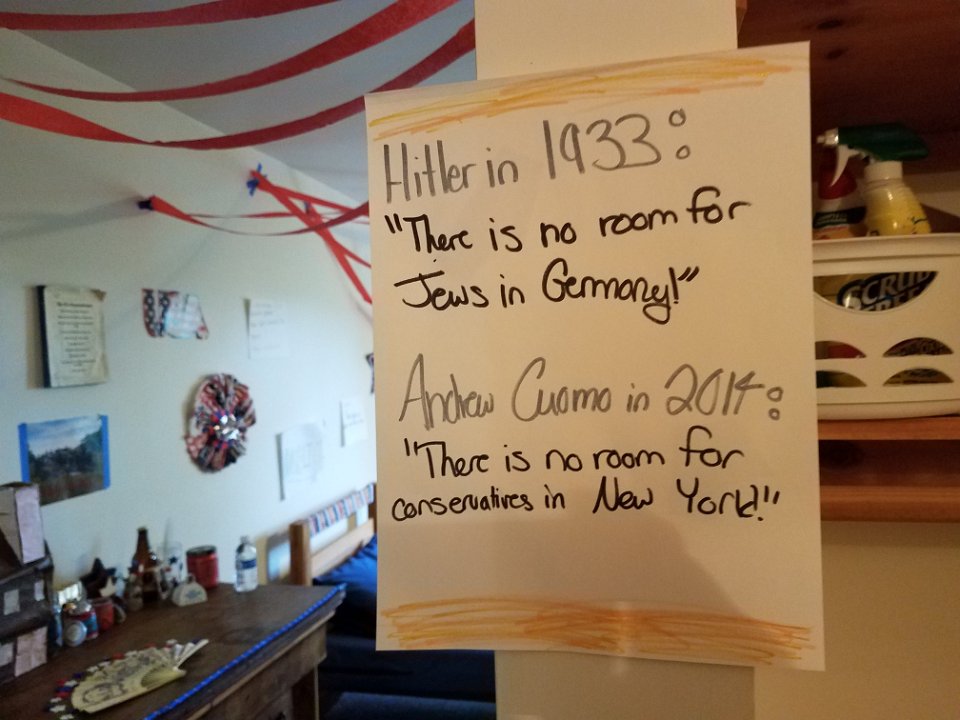 Hitler in 1933:
"There is no room for
Jews in Germany!"
Andrew Cuomo in 2014:
"There is no room for
conservatives in New York!"
SCRUB
FREE